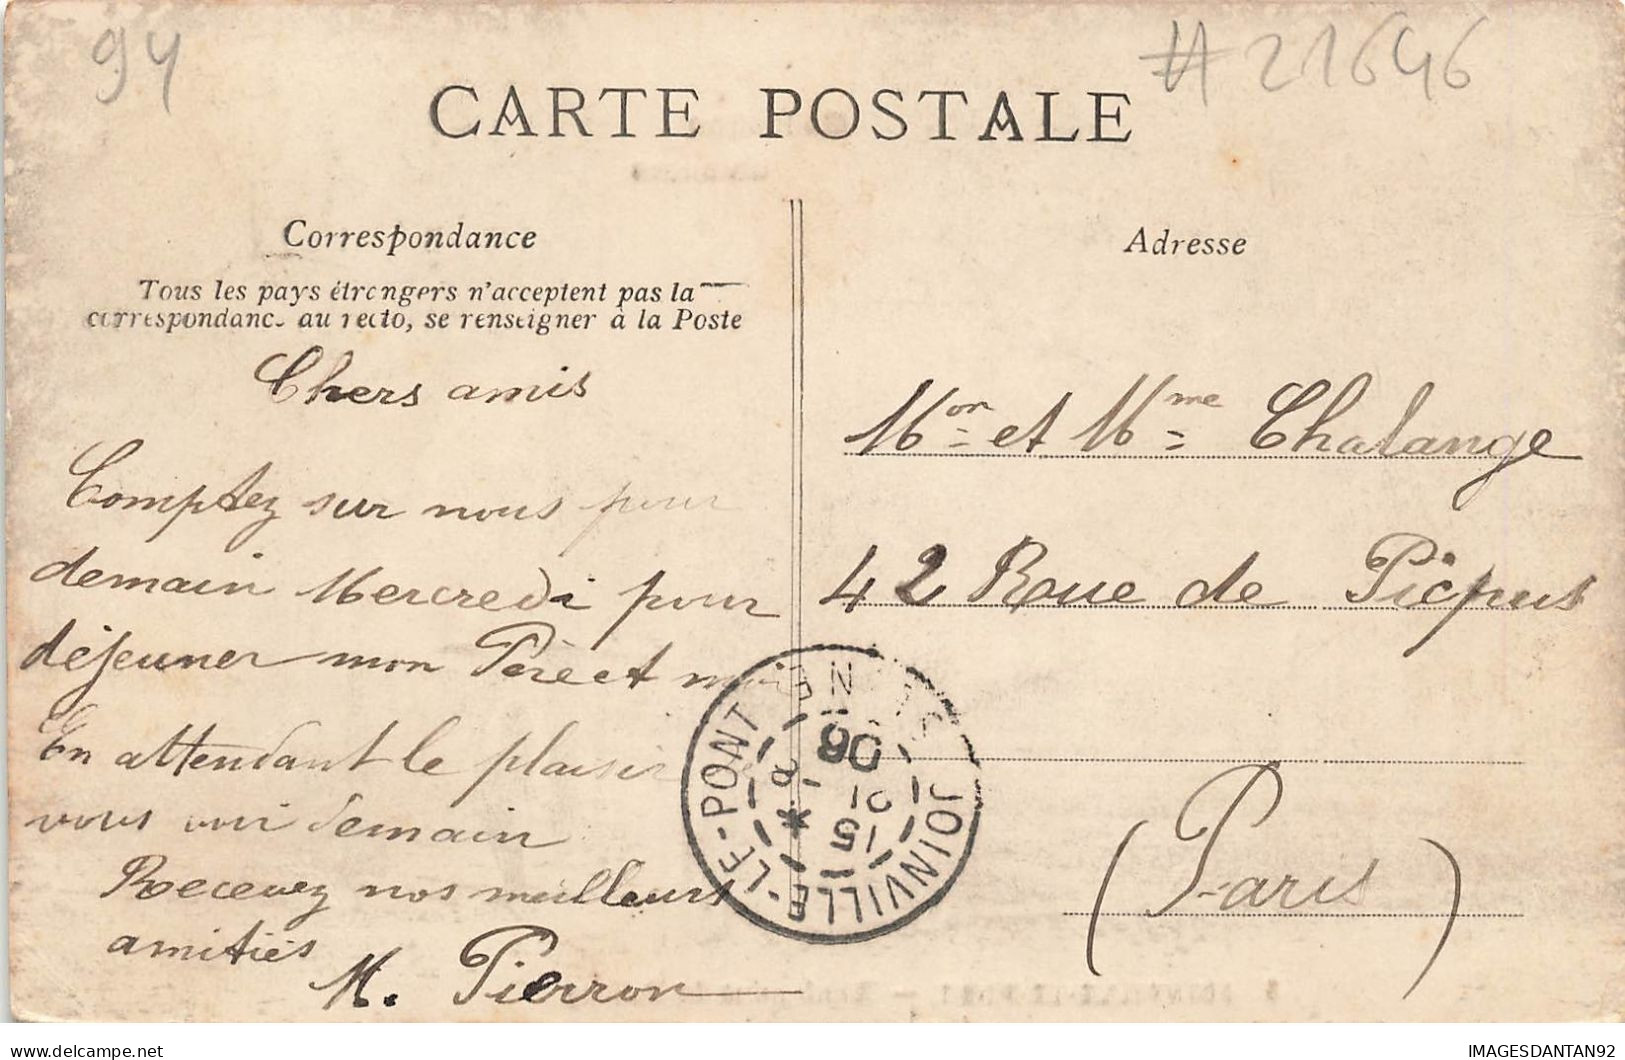 94
# 21646
CARTE POSTALE
Correspondance
Tous les pays étrangers n'acceptent pas la
correspondance au recto, se renseigner à la Poste
Chers amis
Comptez sur nous pour
demain Mercredi pour
déjeuner mon Père et moi
En attendant le plaisir
vous voir demain
Recevez nos meilleurs
amitiés
M. Pierron
Adresse
Mon et Mme Chalange
42 Rue de Picpus
(Paris)
JOINVILLE-LE-PONT
IMAGESDANTAN92